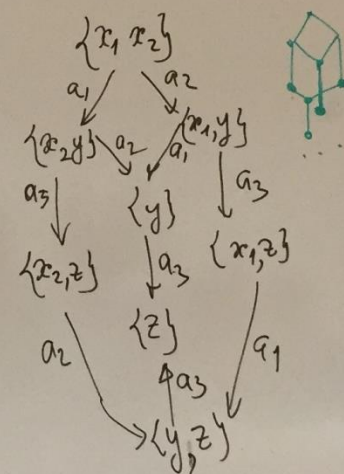 {x₁ x₂}
a₁ a₂
{x₂y} a₂ a₁ {x₁,y}
a₃ {y} a₃
{x₂,z} a₃ {x₁,z}
{z}
a₂ a₃ a₁
{y,z}